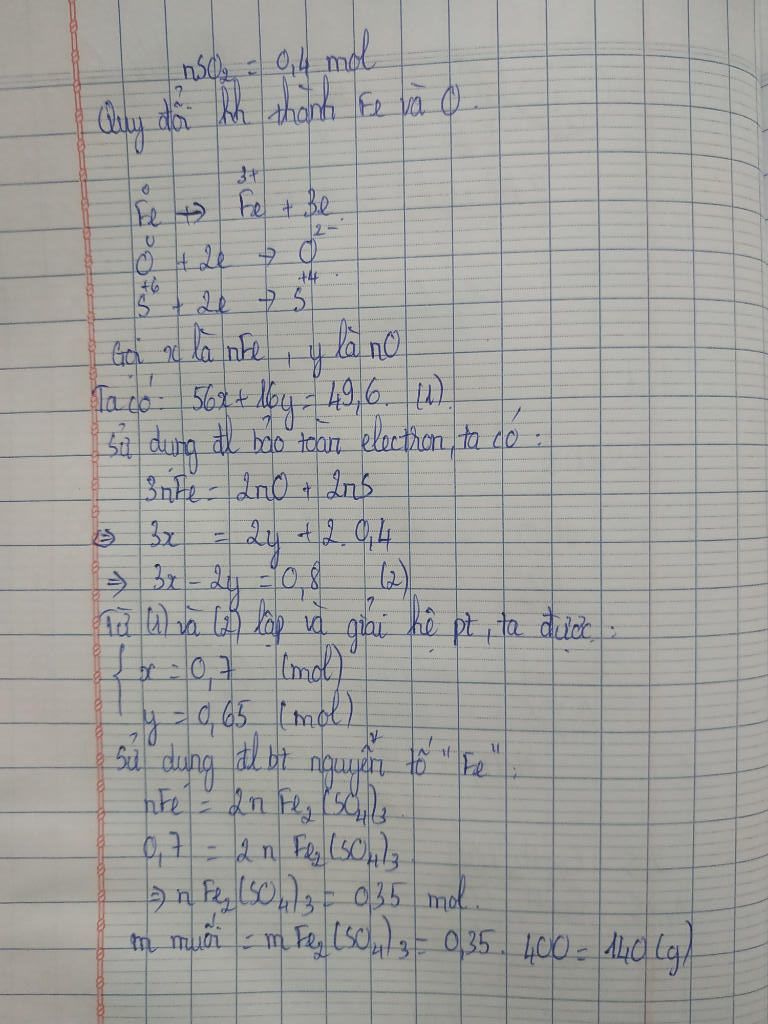 nSO₂ = 0,4 mol
Quy đổi hh thành Fe và O.
Fe⁰ → Fe³⁺ + 3e
O⁰ + 2e → O²⁻
S⁺⁶ + 2e → S⁺⁴
Gọi x là nFe, y là nO
Ta có: 56x + 16y = 49,6. (1)
Sử dụng đl bảo toàn electron, ta có:
3nFe = 2nO + 2nS
⇒ 3x = 2y + 2.0,4
⇒ 3x - 2y = 0,8 (2)
Từ (1) và (2) lập và giải hệ pt, ta được:
{ x = 0,7 (mol)
y = 0,65 (mol)
Sử dụng đl bt nguyễn tố "Fe":
nFe = 2n Fe₂(SO₄)₃
0,7 = 2n Fe₂(SO₄)₃
⇒ n Fe₂(SO₄)₃ = 0,35 mol.
m muối = m Fe₂(SO₄)₃ = 0,35. 400 = 140 (g)